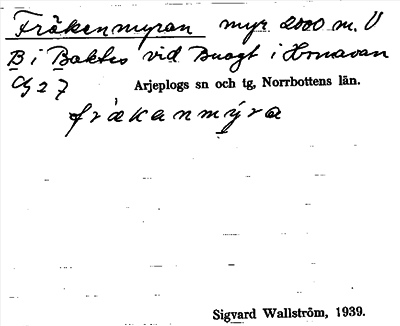 Fräkenmyran myr 2000 m. V
B i Baktes vid Buogt i Hornavan
G 27
Arjeplogs sn och tg, Norrbottens län.
fräkanmýra
Sigvard Wallström, 1939.